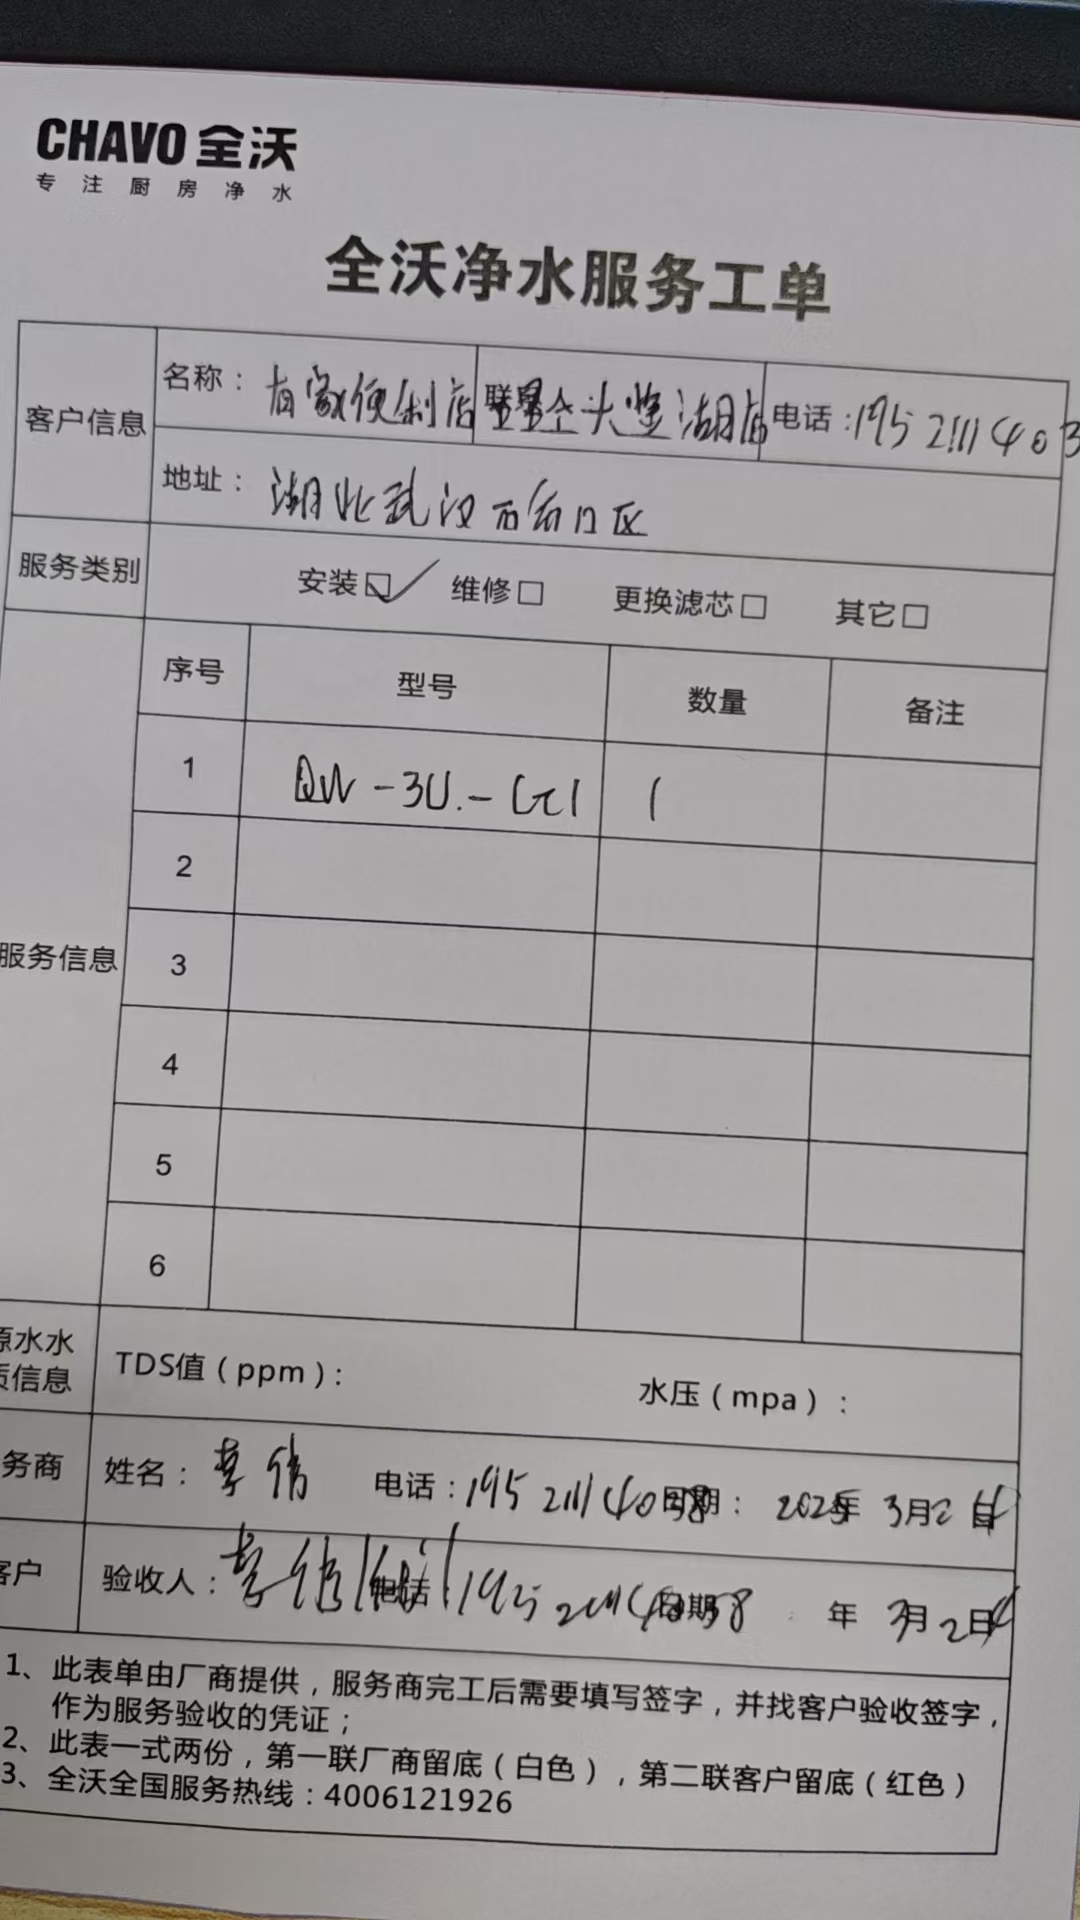 CHAVO 全沃
专注厨房净水
全沃净水服务工单
客户信息
名称： 有家便利店 大 湖店 电话：195 2111 403
地址： 湖北武汉 区
服务类别 安装☑ 维修□ 更换滤芯□ 其它□
服务信息
序号 型号 数量 备注
1 QW-3U.-G1 1
2
3
4
5
6
源水水质信息 TDS值（ppm）： 水压（mpa）：
务商 姓名：李 电话：195 2111 40 日期： 2025年 3月2 日
客户 验收人：李 电话 日期 年 3月2 日
1、此表单由厂商提供，服务商完工后需要填写签字，并找客户验收签字，
作为服务验收的凭证；
2、此表一式两份，第一联厂商留底（白色），第二联客户留底（红色）
3、全沃全国服务热线：4006121926